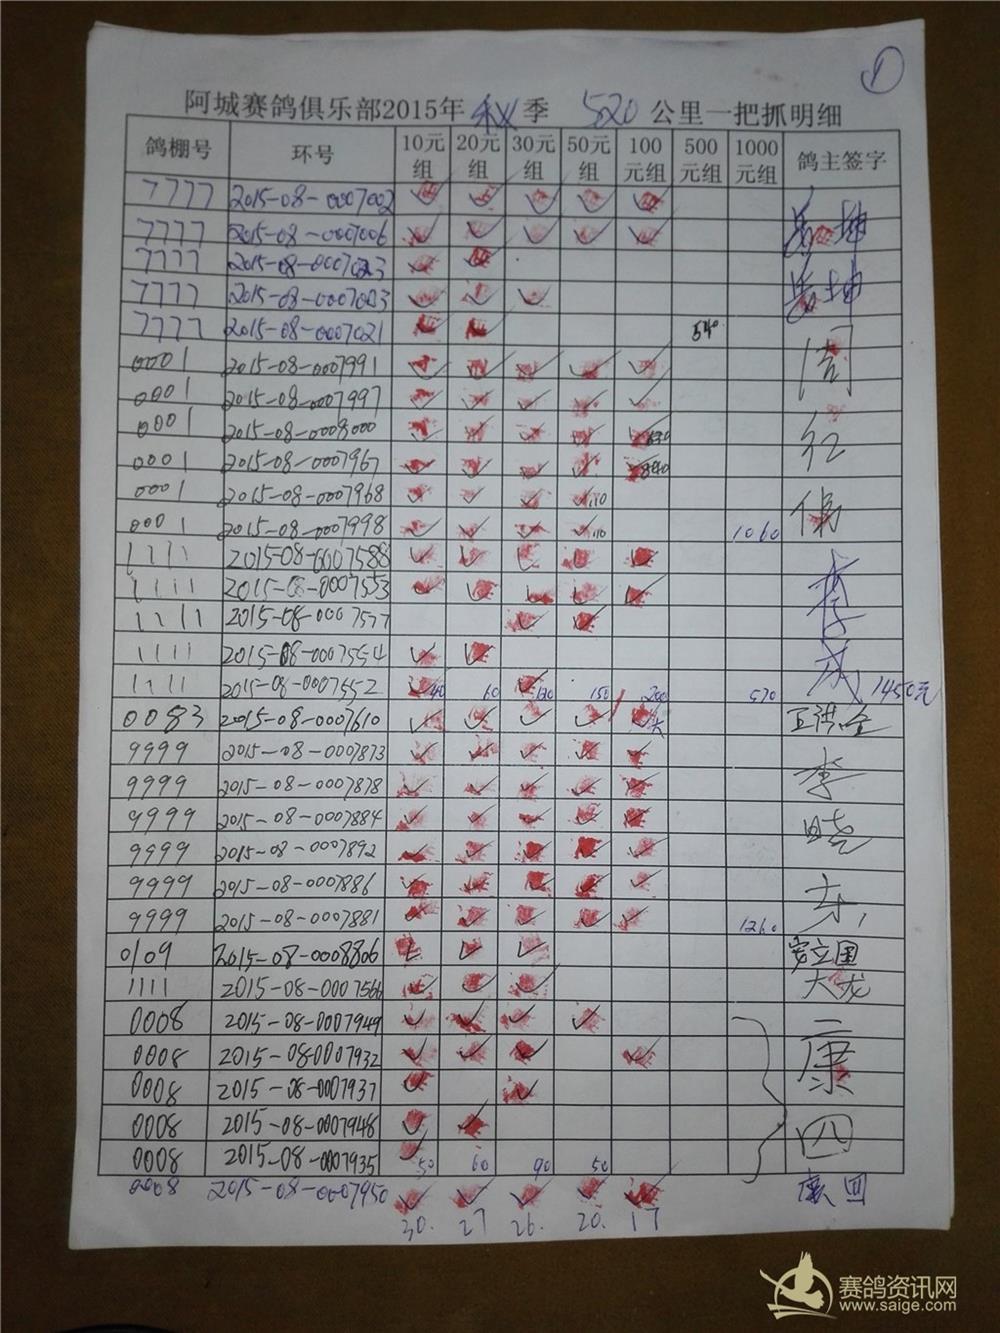 ①
阿城赛鸽俱乐部2015年 秋 季 520 公里一把抓明细
鸽棚号 环号 10元组 20元组 30元组 50元组 100元组 500元组 1000元组 鸽主签字
7777 2015-08-0007002 ✓ ✓ ✓ ✓ ✓
7777 2015-08-0007006 ✓ ✓ ✓ ✓ ✓ 岳坤
7777 2015-08-0007023 ✓ ✓
7777 2015-08-0007003 ✓ ✓ ✓ 岳坤
7777 2015-08-0007021 540
0001 2015-08-0007991 ✓ ✓ ✓ ✓ ✓ 周
0001 2015-08-0007997 ✓ ✓ ✓ ✓ ✓
0001 2015-08-0008000 ✓ ✓ ✓ ✓ 红
0001 2015-08-0007967 ✓ ✓ ✓ ✓ 840
0001 2015-08-0007968 ✓ ✓ ✓ ✓
0001 2015-08-0007998 ✓ ✓ ✓ ✓ 1060
1111 2015-08-0007588 ✓ ✓ ✓ ✓ ✓
1111 2015-08-0007553 ✓ ✓ ✓ ✓ ✓ 李
1111 2015-08-0007577 ✓ ✓
1111 2015-08-0007554 ✓ ✓ 成
1111 2015-08-0007552 ✓ 40 60 ✓ 120 150 200 570 1450元
0083 2015-08-0007610 ✓ ✓ ✓ ✓ ✓
9999 2015-08-0007873 ✓ ✓ ✓ ✓ ✓
9999 2015-08-0007878 ✓ ✓ ✓ ✓ ✓ 李
9999 2015-08-0007884 ✓ ✓ ✓ ✓ ✓ 晓
9999 2015-08-0007892 ✓ ✓ ✓ ✓ ✓
9999 2015-08-0007886 ✓ ✓ ✓ ✓ ✓
9999 2015-08-0007881 ✓ ✓ ✓ ✓ ✓ 1260 东
0109 2015-08-0008806 ✓ ✓ ✓ 安立国
1111 2015-08-0007566 ✓ ✓ ✓ 大龙
0008 2015-08-0007949 ✓ ✓ ✓ ✓
0008 2015-08-0007932 ✓ ✓ ✓ ✓ 康
0008 2015-08-0007937 ✓ ✓
0008 2015-08-0007948 ✓ ✓ 四
0008 2015-08-0007935 ✓ 50 60 90 50
0008 2015-08-0007950 ✓ ✓ ✓ ✓ ✓ 康四
30. 27 26. 20. 17
赛鸽资讯网
www.saige.com